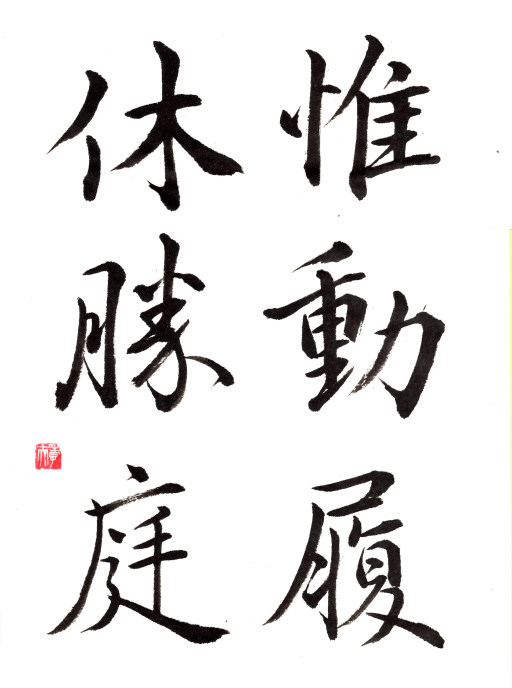 惟動履
休勝庭